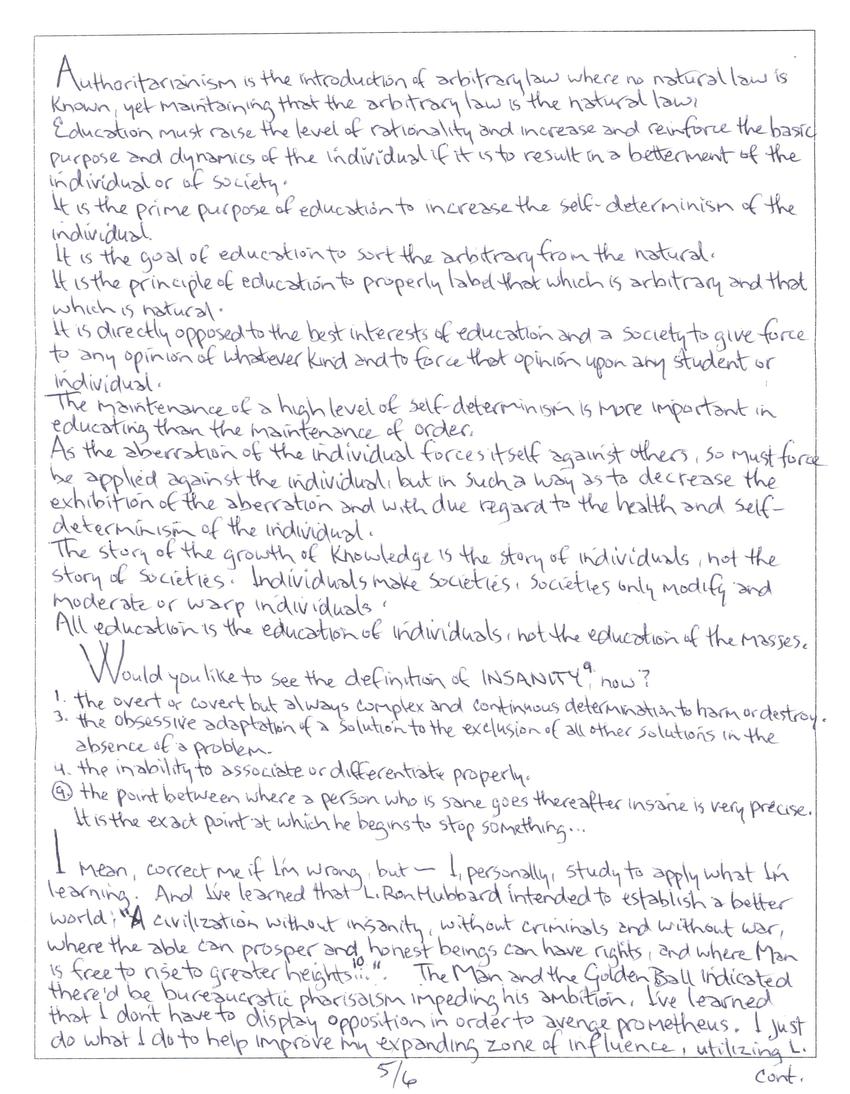 Authoritarianism is the introduction of arbitrary law where no natural law is
Known, yet maintaining that the arbitrary law is the natural law.
Education must raise the level of rationality and increase and reinforce the basic
purpose and dynamics of the individual if it is to result in a betterment of the
individual or of society.
It is the prime purpose of education to increase the self-determinism of the
individual.
It is the goal of education to sort the arbitrary from the natural.
It is the principle of education to properly label that which is arbitrary and that
which is natural.
It is directly opposed to the best interests of education and a society to give force
to any opinion of whatever kind and to force that opinion upon any student or
individual.
The maintenance of a high level of self-determinism is more important in
educating than the maintenance of order.
As the aberration of the individual forces itself against others, so must force
be applied against the individual, but in such a way as to decrease the
exhibition of the aberration and with due regard to the health and self-
determinism of the individual.
The story of the growth of Knowledge is the story of individuals, not the
story of societies. Individuals make societies. Societies only modify and
moderate or warp individuals.
All education is the education of individuals, not the education of the masses.
Would you like to see the definition of INSANITY9, now?
1. the overt or covert but always complex and continuous determination to harm or destroy.
3. the obsessive adaptation of a solution to the exclusion of all other solutions in the
absence of a problem.
4. the inability to associate or differentiate properly.
9. the point between where a person who is sane goes thereafter insane is very precise.
It is the exact point at which he begins to stop something...
I mean, correct me if I'm wrong, but — I, personally, study to apply what I'm
learning. And I've learned that L. Ron Hubbard intended to establish a better
world; "A civilization without insanity, without criminals and without war,
where the able can prosper and honest beings can have rights, and where Man
is free to rise to greater heights10...". The Man and the Golden Ball indicated
there'd be bureaucratic pharisaism impeding his ambition. I've learned
that I don't have to display opposition in order to avenge prometheus. I just
do what I do to help improve my expanding zone of influence, utilizing L.
5/6
cont.